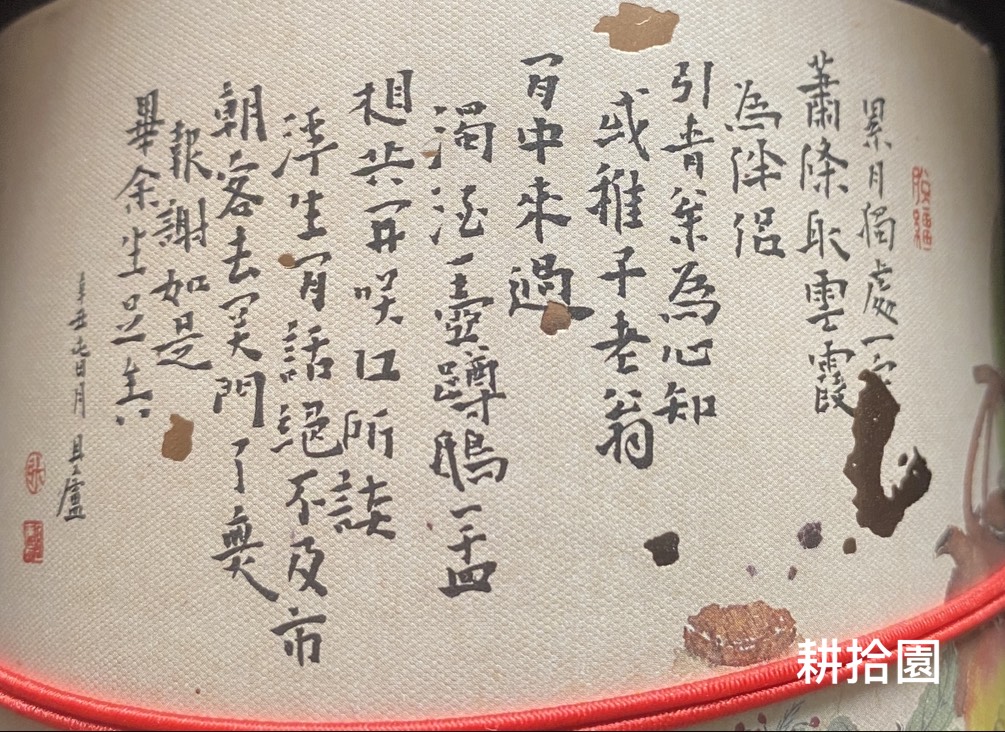 累月獨處一
蕭條取雲霞
為伴侶
引青枀為心知
或稚子老翁
閒中來過
濁酒一壺蹲鴟一盂
相共開咲口所談
浮生閒話絕不及市
朝客去關門了無
報謝如是
畢余生足矣
辛丑 月 廬
耕拾園